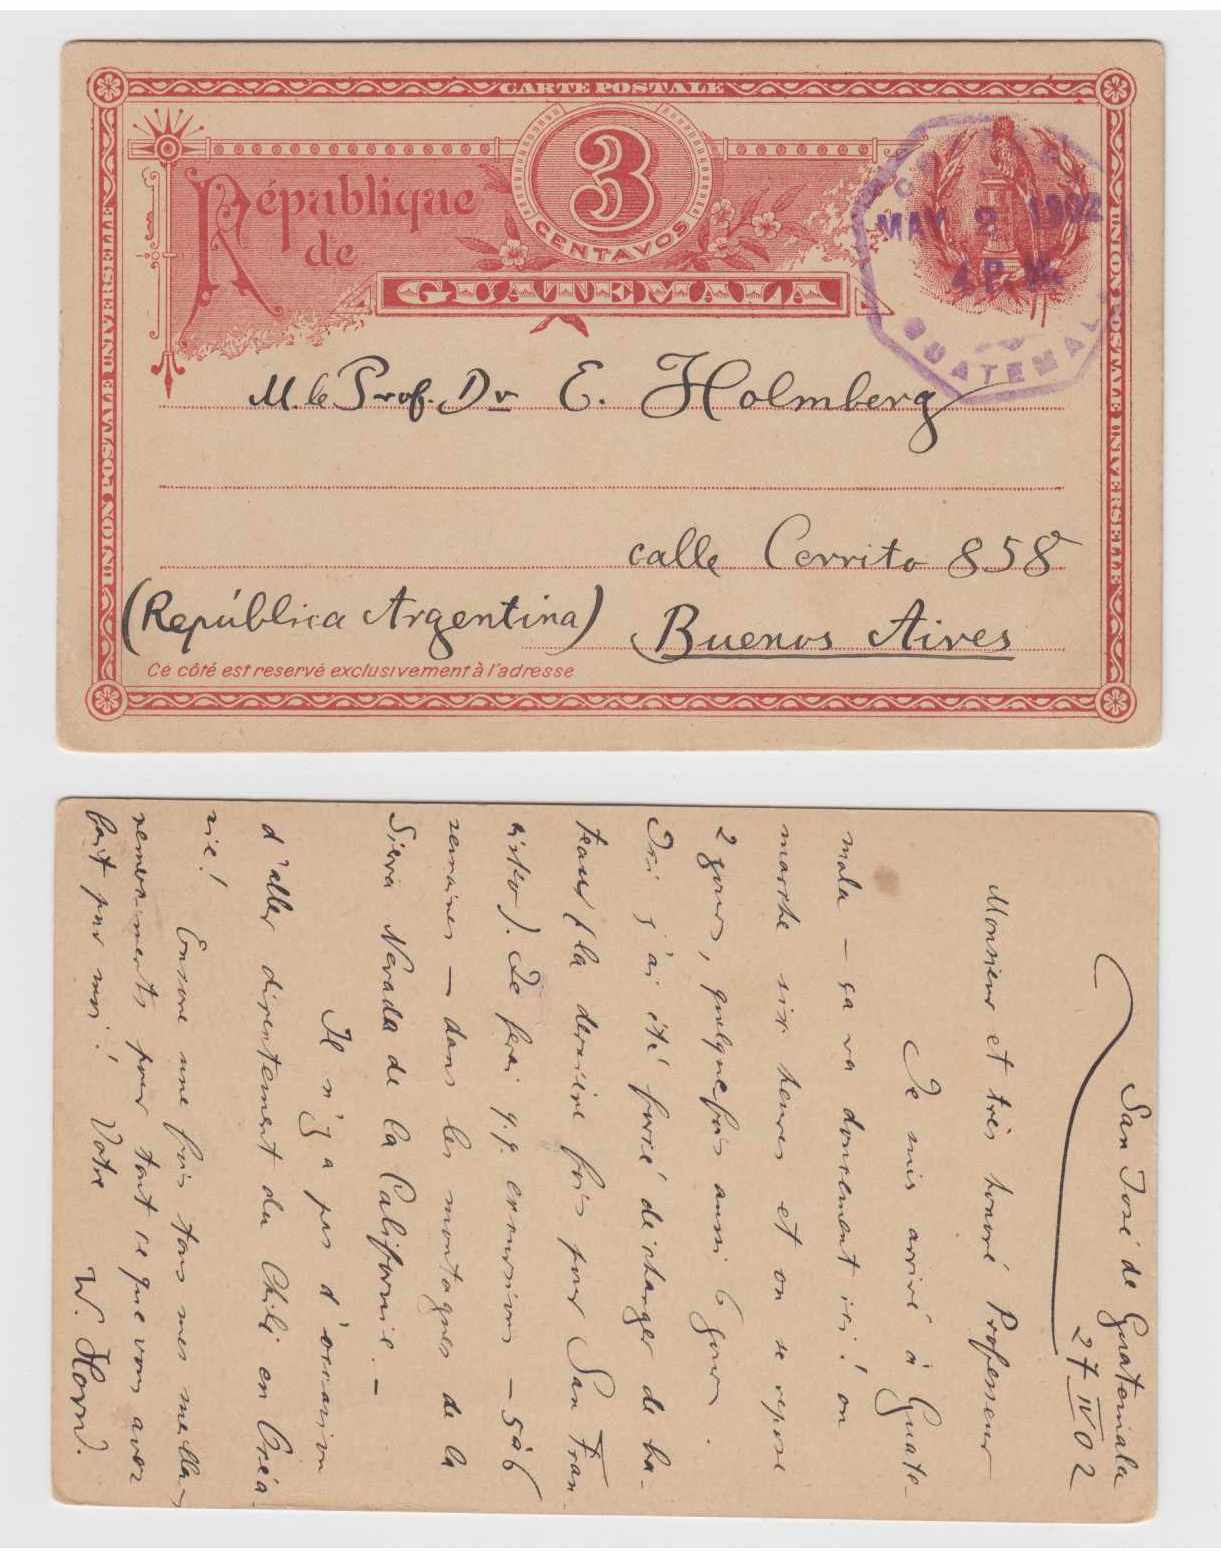 CARTE POSTALE
UNION POSTALE UNIVERSELLE
UNION POSTALE UNIVERSELLE
République
de
3
CENTAVOS
GUATEMALA
MAY 2 1902
4 P.M.
GUATEMAL
M. le Prof. Dr E. Holmberg
calle Cerrito 858
(República Argentina) Buenos Aires
Ce côté est reservé exclusivement à l'adresse
San José de Guatemala
27 IV 02
Monsieur et très honoré Professeur
Je suis arrivé à Guate-
mala – ça va doucement ici! on
marche six heures et on se repose
2 jours, quelquefois aussi 6 jours.
Ici j'ai été forcé de changer de ba-
teaux (la dernière fois pour San Fran-
cisko). Je ferai q.q. excursions – 5 à 6
semaines – dans les montagnes de la
Sierra Nevada de la Californie. –
Il n'y a pas d'occasion
d'aller directement du Chili en Créa-
rie!
Encore une fois tous mes meilleurs
remerciments pour tout ce que vous avez
fait pour moi! Votre
W. Horn.